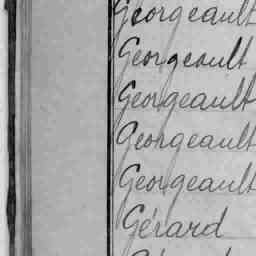 Georgeault
Georgeault
Georgeault
Georgeault
Georgeault
Gérard